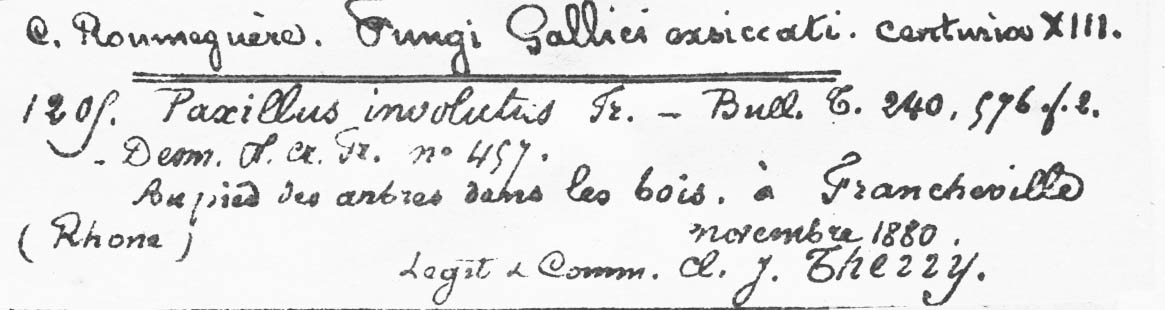 C. Roumeguère. Fungi Gallici exsiccati. Centuria XIII.
1205. Paxillus involutus Fr. — Bull. T. 240, 576 f. 2.
- Desm. Pl. cr. Fr. nº 457.
Au pied des arbres dans les bois. à Francheville
(Rhone) novembre 1880.
Legit & Comm. Cl. J. Therry.